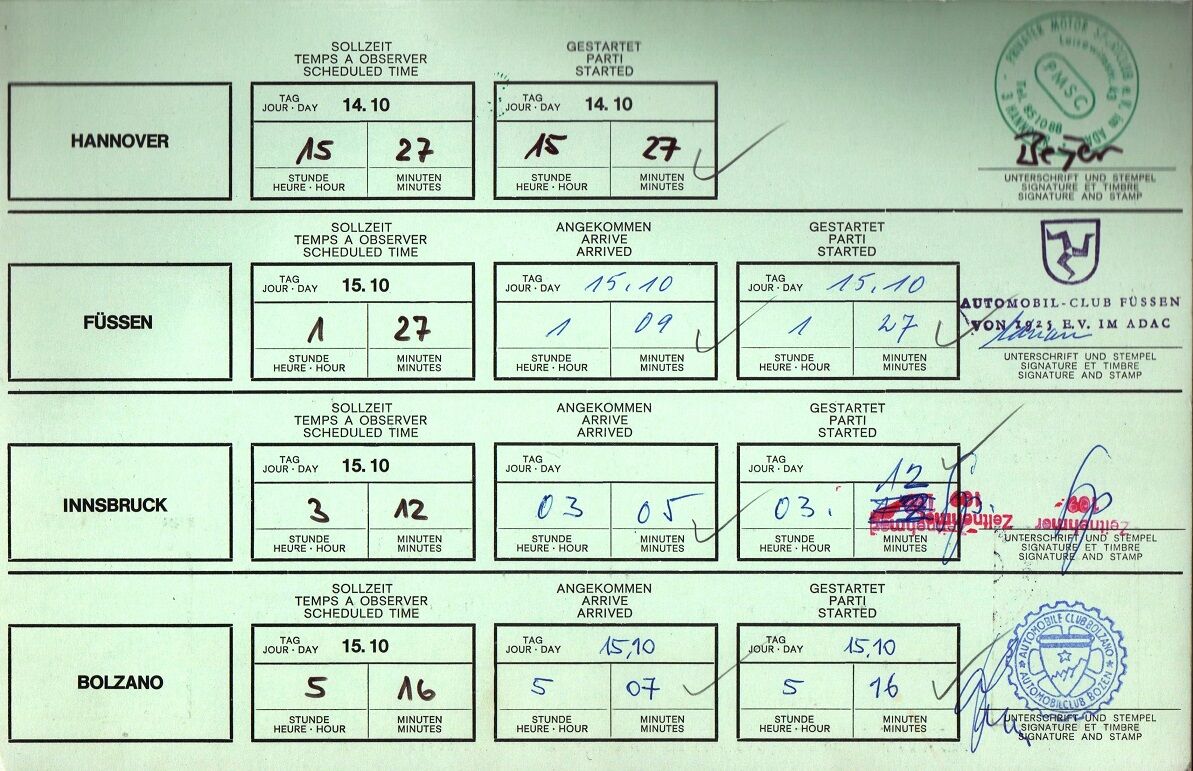 SOLLZEIT
TEMPS A OBSERVER
SCHEDULED TIME
GESTARTET
PARTI
STARTED
HANNOVER
TAG
JOUR · DAY 14.10
15 27
STUNDE
HEURE · HOUR
MINUTEN
MINUTES
TAG
JOUR · DAY 14.10
15 27
STUNDE
HEURE · HOUR
MINUTEN
MINUTES
PRIVATER MOTOR SPORTCLUB e.V. im ADAC
PMSC
Tel. 851088
Beyer
UNTERSCHRIFT UND STEMPEL
SIGNATURE ET TIMBRE
SIGNATURE AND STAMP
SOLLZEIT
TEMPS A OBSERVER
SCHEDULED TIME
ANGEKOMMEN
ARRIVE
ARRIVED
GESTARTET
PARTI
STARTED
FÜSSEN
TAG
JOUR · DAY 15.10
1 27
STUNDE
HEURE · HOUR
MINUTEN
MINUTES
TAG
JOUR · DAY 15.10
1 09
STUNDE
HEURE · HOUR
MINUTEN
MINUTES
TAG
JOUR · DAY 15.10
1 27
STUNDE
HEURE · HOUR
MINUTEN
MINUTES
AUTOMOBIL-CLUB FÜSSEN
VON 1925 E.V. IM ADAC
UNTERSCHRIFT UND STEMPEL
SIGNATURE ET TIMBRE
SIGNATURE AND STAMP
SOLLZEIT
TEMPS A OBSERVER
SCHEDULED TIME
ANGEKOMMEN
ARRIVE
ARRIVED
GESTARTET
PARTI
STARTED
INNSBRUCK
TAG
JOUR · DAY 15.10
3 12
STUNDE
HEURE · HOUR
MINUTEN
MINUTES
TAG
JOUR · DAY
03 05
STUNDE
HEURE · HOUR
MINUTEN
MINUTES
TAG
JOUR · DAY
03. 12
STUNDE
HEURE · HOUR
MINUTEN
MINUTES
Zeitnehmer
109
Zeitnehmer
109
UNTERSCHRIFT UND STEMPEL
SIGNATURE ET TIMBRE
SIGNATURE AND STAMP
SOLLZEIT
TEMPS A OBSERVER
SCHEDULED TIME
ANGEKOMMEN
ARRIVE
ARRIVED
GESTARTET
PARTI
STARTED
BOLZANO
TAG
JOUR · DAY 15.10
5 16
STUNDE
HEURE · HOUR
MINUTEN
MINUTES
TAG
JOUR · DAY 15,10
5 07
STUNDE
HEURE · HOUR
MINUTEN
MINUTES
TAG
JOUR · DAY 15.10
5 16
STUNDE
HEURE · HOUR
MINUTEN
MINUTES
AUTOMOBILE CLUB BOLZANO
AUTOMOBILCLUB BOZEN
UNTERSCHRIFT UND STEMPEL
SIGNATURE ET TIMBRE
SIGNATURE AND STAMP